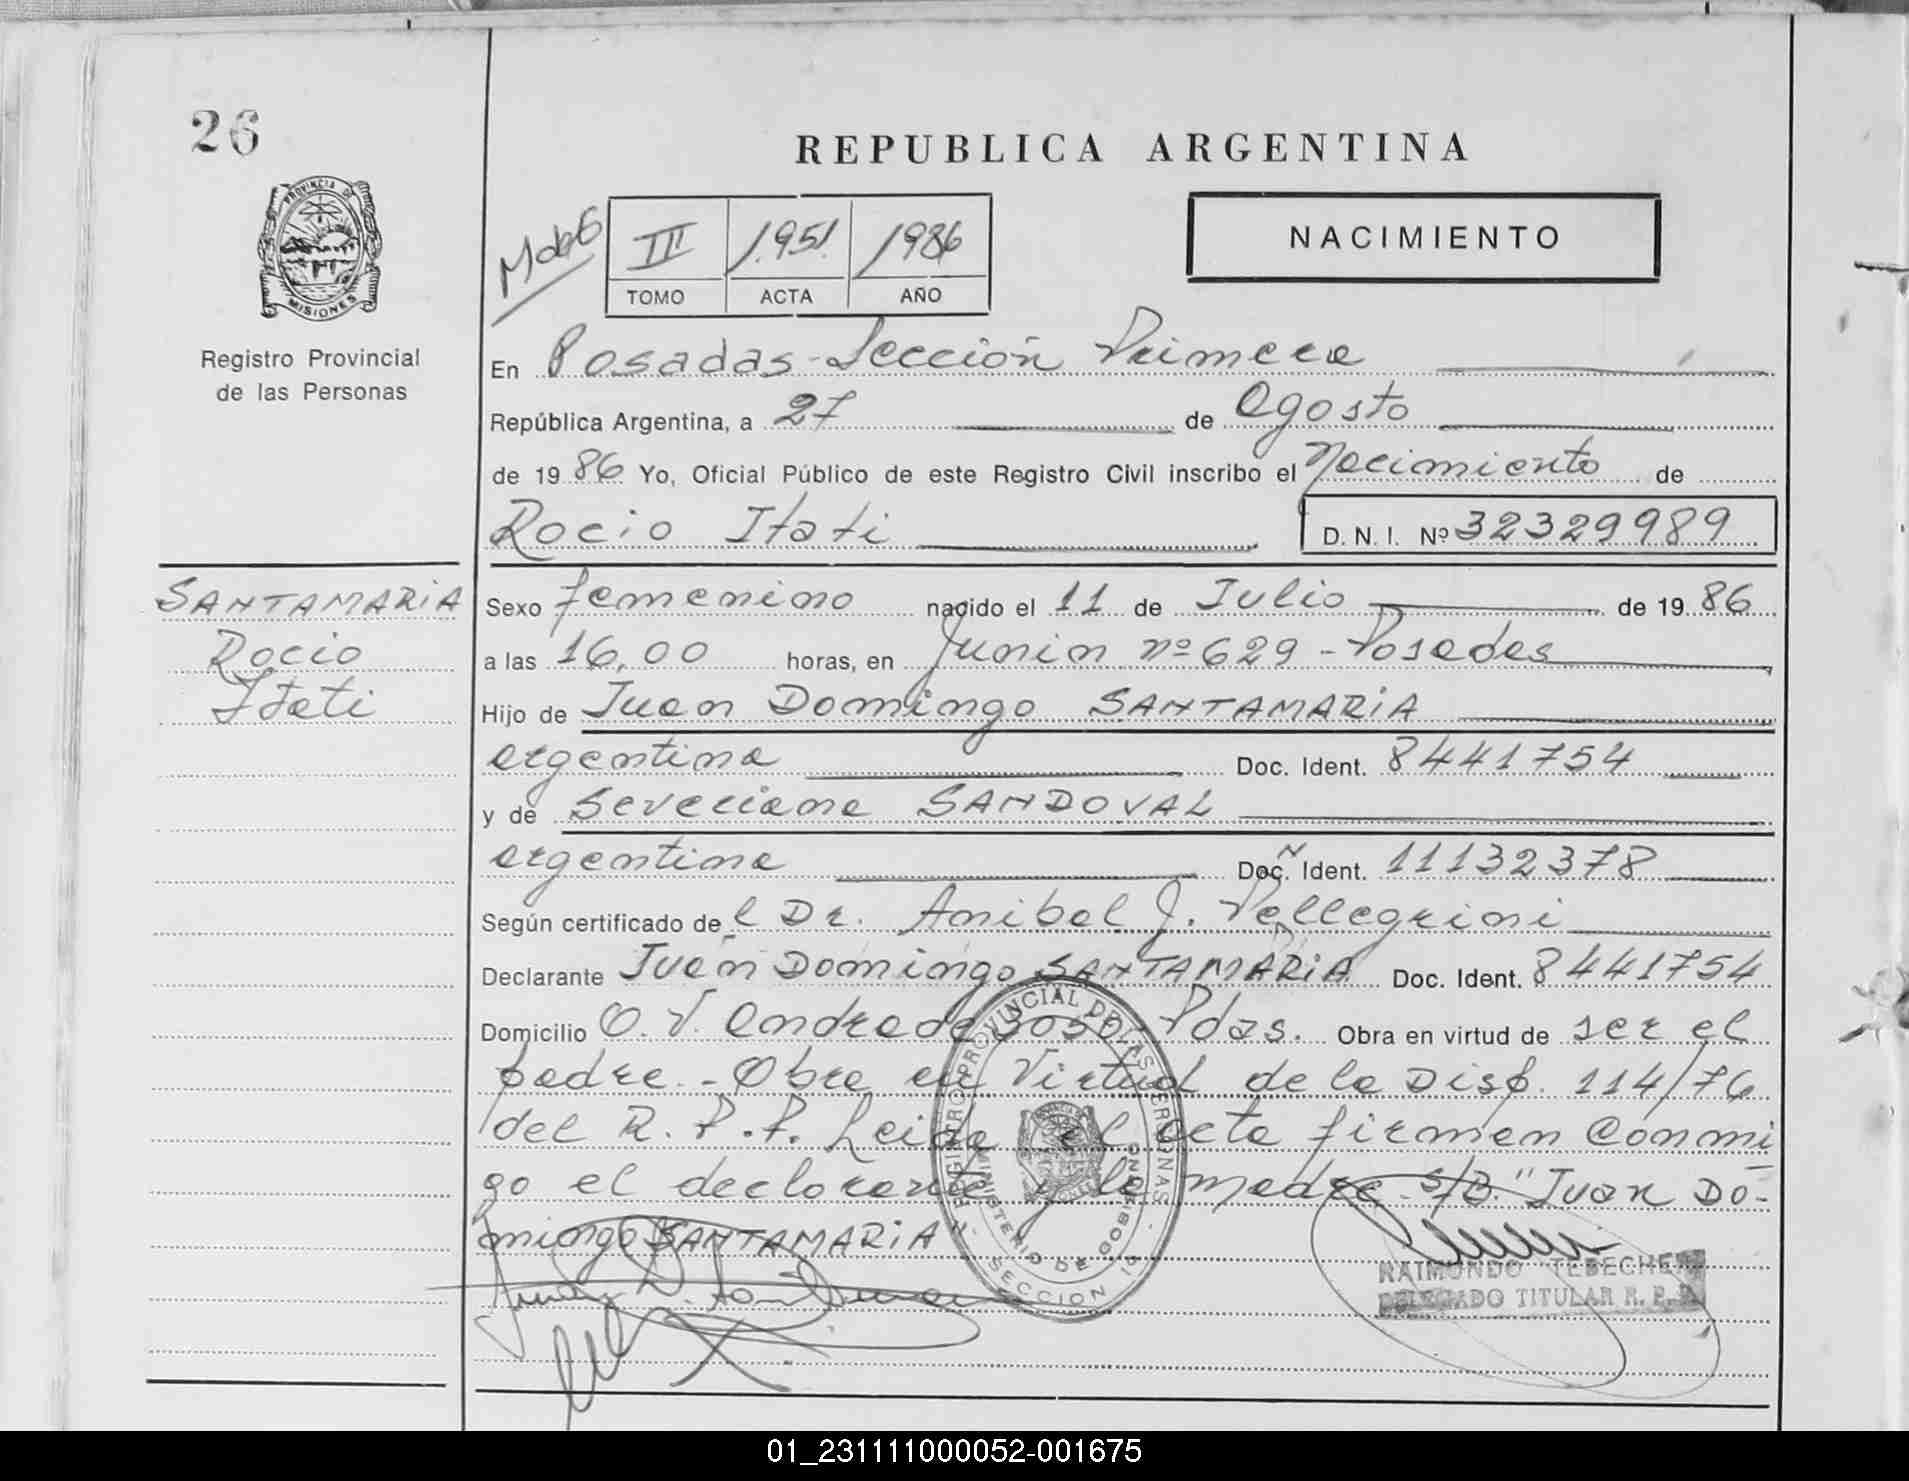 26
REPUBLICA ARGENTINA
PROVINCIA DE
MISIONES
Registro Provincial
de las Personas
III 1951 1986
TOMO ACTA AÑO
NACIMIENTO
En Posadas - Sección Primera
República Argentina, a 27 de Agosto
de 1986 Yo, Oficial Público de este Registro Civil inscribo el Nacimiento de
Rocio Itati D. N. I. Nº 32329989
SANTAMARiA
Rocio
Itati
Sexo femenino nacido el 11 de Julio de 1986
a las 16,00 horas, en Junin nº 629 - Posadas
Hijo de Juan Domingo SANTAMARiA
argentina Doc. Ident. 8441754
y de Severiana SANDOVAL
argentina Doc. Ident. 11132378
Según certificado del Dr. Anibal J. Pellegrini
Declarante Juan Domingo SANTAMARiA Doc. Ident. 8441754
Domicilio O. V. Andrade 3050 Pdas. Obra en virtud de ser el
padre. - Obra en Virtud de la Disp. 114/76
del R. P. P. Leida el acta firman Conmi
go el declarante y la madre. S/B. "Juan Do-
mingo SANTAMARiA"
REGISTRO PROVINCIAL DE LAS PERSONAS
MINISTERIO DE GOBIERNO
SECCION 1ª
RAIMONDO TEBECHERI
DELEGADO TITULAR R. P. P.
01_231111000052-001675